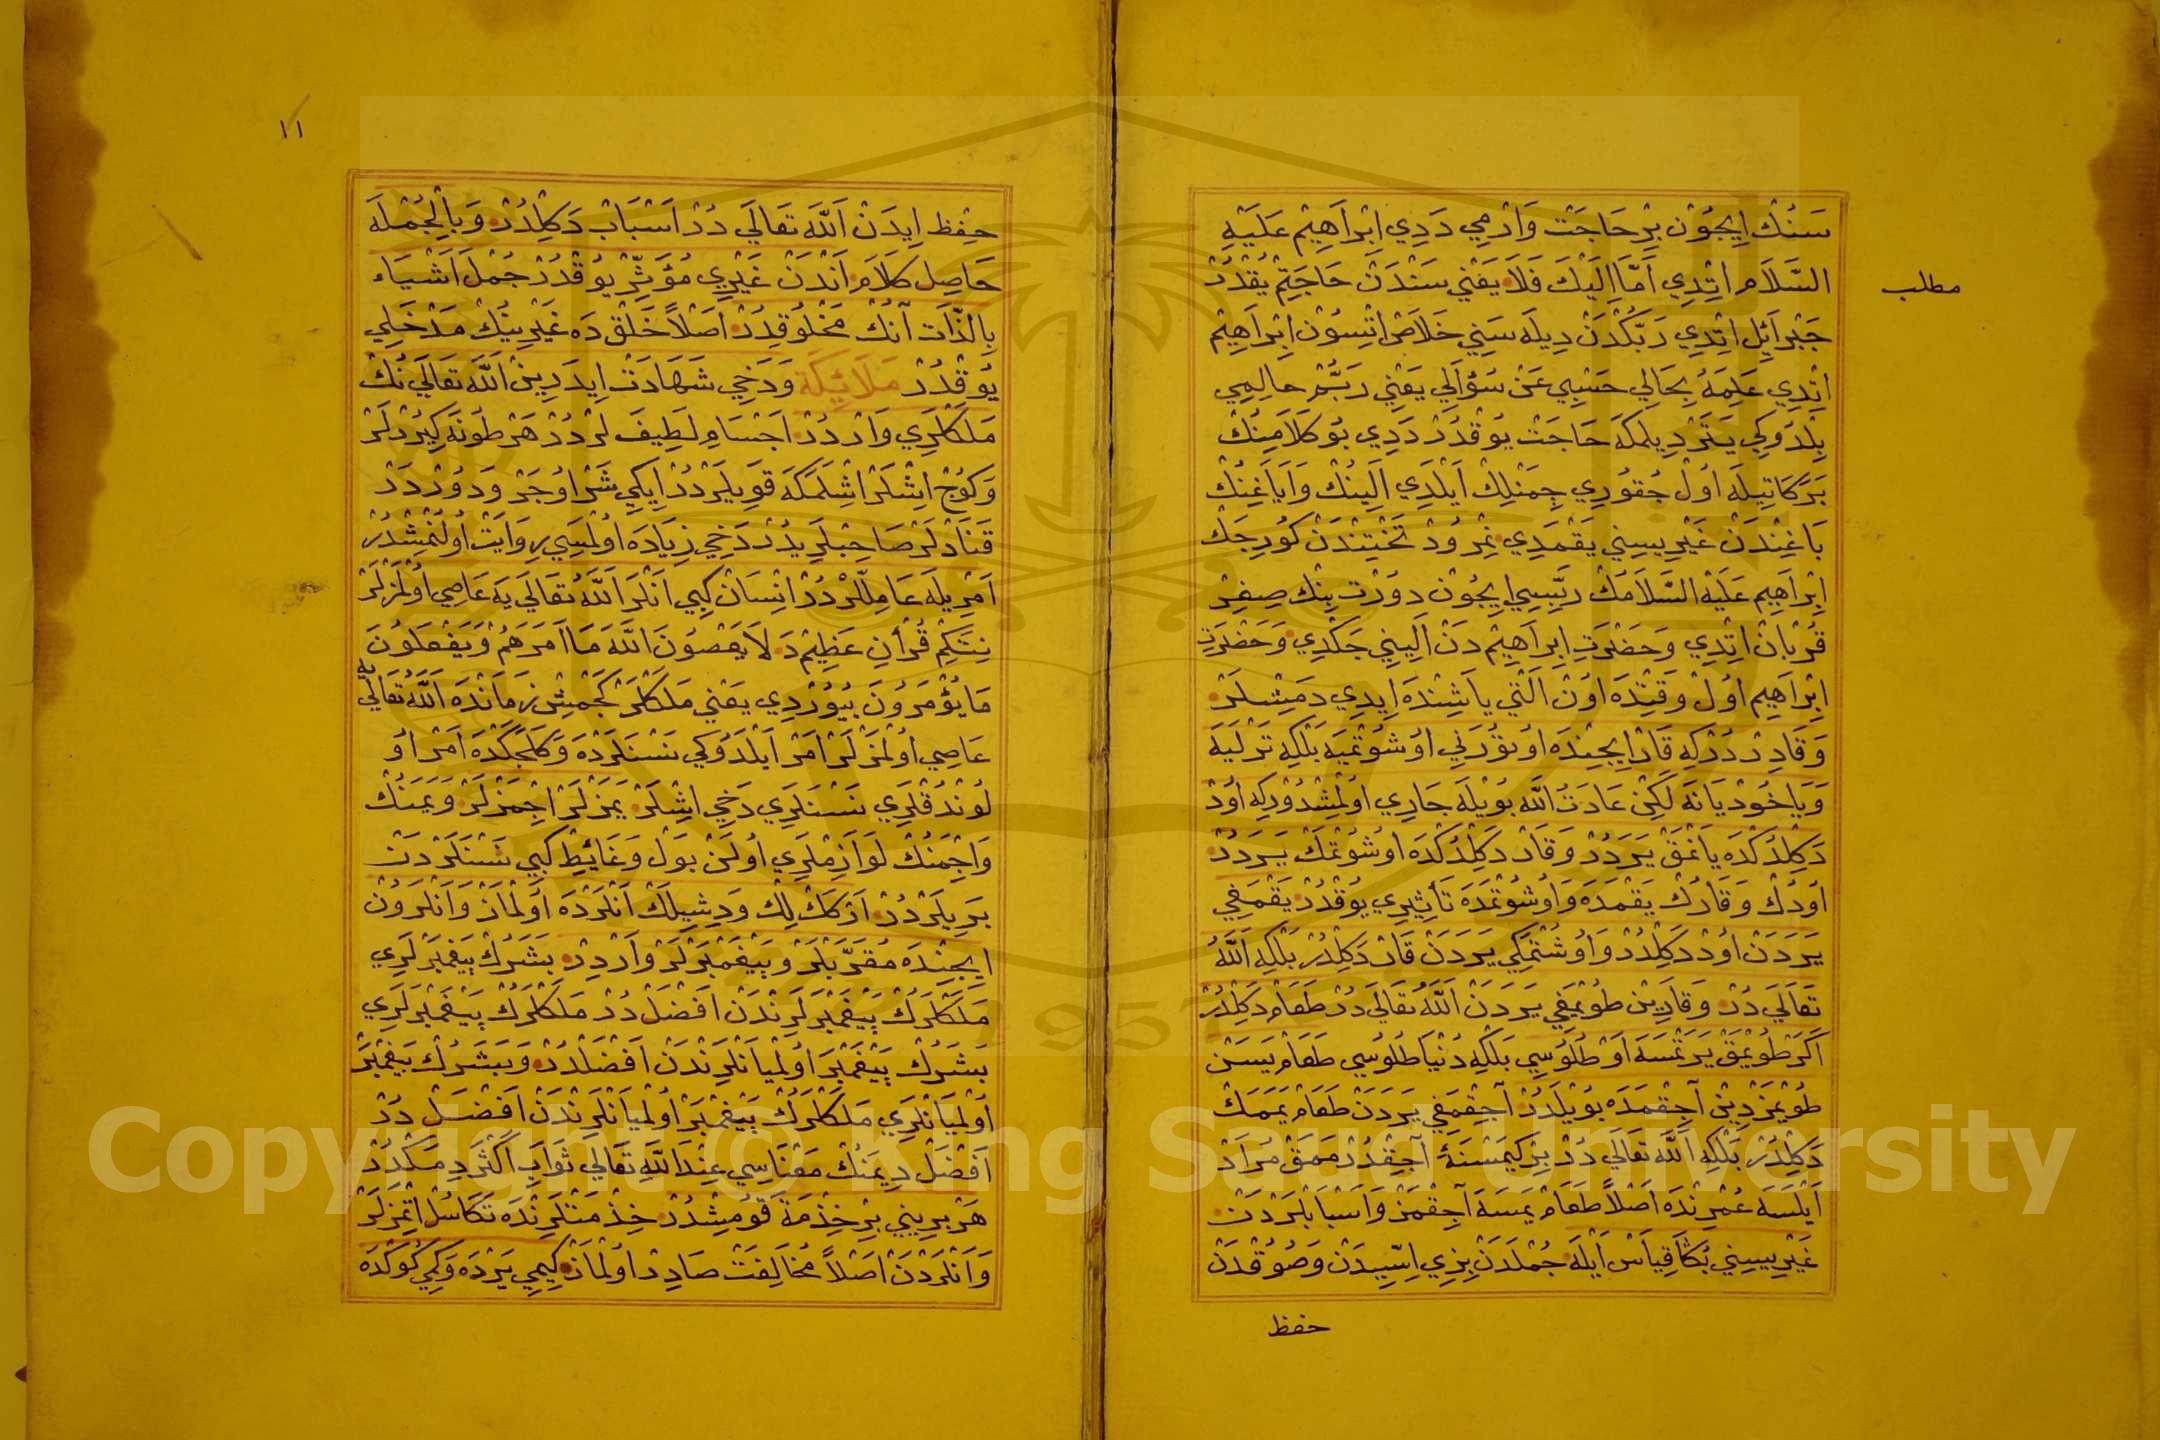 سَنُكْ اِيجُوْنْ بِرْ حَاجَتْ وَارْمِي دَدِي اِبْرَاهِيْم عَلَيْهِ
السَّلَام اِتِدِي اَمَّا اِلَيْكَ فَلَا يَعْنِي سَنْدَنْ حَاجَتِمْ يُقْدُرْ
مطلب
جَبْرَائِل اِتِدِي رَبُّكْدَنْ دِيلَه سَنِي خَلَاصْ اِتْسُوْن اِبْرَاهِيْم
اِتِدِي عَلِمَهُ بِحَالِي حَسْبِي عَنْ سُؤَالِي يَعْنِي رَبُّمْ حَالِمِي
بِلُدُوكِي يَتَرْ دِيلَمَكَه حَاجَتْ يُوقْدُرْ دَدِي بُو كَلَامِنُكْ
بَرَكَاتِيلَه اَوُلْ جُقُورِي جِمَنْلِكْ اَيْلَدِي اَلِينُكْ وَاَيَاغِنُكْ
بَاغِنْدَنْ غَيْرِيسِنِي يَقْمَدِي نِمْرُودْ تَخْتِنْدَنْ كُورِجَكْ
اِبْرَاهِيم عَلَيْهِ السَّلَامَكْ رَبِّيسِي اِيجُوْن دُورْت بِنْكْ صِغِرْ
قُرْبَانْ اِتِدِي وَحَضْرَتِ اِبْرَاهِيْم دَنْ اَلِينِي جَكْدِي وَحَضْرَتِ
اِبْرَاهِيم اَوُلْ وَقِتْدَه اَوُنْ اَلْتِي يَاشِنْدَه اِيدِي دَمِشْلَرْ
وَقَادِرْدُرْ كِه قَارْ اِيجِنْدَه اُوتُورَنِي اُوشُوتْمِيَه بَلْكِه تَرْلَيَه
وَيَاخُودْ يَانَه لَكِنْ عَادَةُ اللَّه بُويْلَه جَارِي اُولْمِشْدُورْكِه اُودْ
دَكِلْدُكْدَه يَانْمَقْ يَرَدُرْ وَقَارْ دَكِلْدُكْدَه اُوشُوتْمَكْ يَرَدُرْ
اُودُكْ وَقَارُكْ يَقْمَدَه وَاُوشُوتْمَدَه تَأْثِيرِي يُوقْدُرْ يَقْمَغِي
يَرَدَنْ اُودْ دَكِلْدُرْ وَاُوشُتْمَكِي يَرَدَنْ قَارْ دَكِلْدُرْ بَلْكِه اَللَّهُ
تَعَالَي دُرْ وَقَارِينْ طُويْمَغِي يَرَدَنْ اَللَّهُ تَعَالَي دُرْ طَعَامْ دَكِلْدُرْ
اَكَرْ طُويْمَقْ يَرَتْمَسَه اَوْ طُلُوسِي بَلْكِه دُنْيَا طُلُوسِي طَعَامْ يَسَنْ
طُويْمَزْدِينْ آجِقْمَدَه بُويْلَدُرْ آجِقْمَغِي يَرَدَنْ طَعَامْ يَمَمَكْ
دَكِلْدُرْ بَلْكِه اَللَّه تَعَالَي دُرْ بِرْ كِيمْسَنَهْ آجِقْدُرْمَمَقْ مُرَادْ
اَيْلَسَه عُمْرِنْدَه اَصْلاً طَعَامْ يَمَسَه آجِقْمَزْ وَاَسْبَابْلَرْدَنْ
غَيْرِيسِنِي بُكَا قِيَاسْ اَيْلَه جُمْلَدَنْ بِزِي اِسِّيدَنْ وَصُوُقْدَنْ
حفظ
١١
حِفْظ اِيدَنْ اَللَّه تَعَالَي دُرْ اَسْبَابْ دَكِلْدُرْ وَبِالْجُمْلَه
حَاصِل كَلَام اَنْدَنْ غَيْرِي مُؤَثِّرْ يُوقْدُرْ جُمْلَ اَشْيَاء
بِالذَّات آنُكْ مَخْلُوقِدُرْ اَصْلاً خَلْقْ دَه غَيْرِينُكْ مَدْخَلِي
يُوقْدُرْ مَلَائِكَة وَدَخِي شَهَادَتْ اِيدَرِينْ اَللَّه تَعَالَي نُكْ
مَلَكْلَرِي وَارْدُرْ اَجْسَامِ لَطِيفَ لَرْدُرْ هَرْ طُونَه كِيرَرْلَرْ
وَكُوجْ اِشْلَرْ اِشْلَمَكَه قَوِيلَرْدُرْ اِيكِي شَرْ اُوجَرْ وَدُورْدَرْ
قَنَادْلَرْ صَاحِبْلَرِيدُرْ دَخِي زِيَادَه اُولْمَسِي رِوَايَتْ اُولُنْمِشْدُرْ
اَمْرِيلَه عَامِلْلَرْدُرْ اِنْسَانْ كِبِي اَنْلَرْ اَللَّهُ تَعَالَي يَه عَاصِي اُولْمَزْلَرْ
نِتَكِمْ قُرْآنِ عَظِيْم دَ لَا يَعْصُوْنَ اللَّهَ مَا اَمَرَهُمْ وَيَفْعَلُونَ
مَا يُؤْمَرُونَ بُيُورْدِي يَعْنِي مَلَكْلَرْ كَجْمِشْ زَمَانْدَه اَللَّهُ تَعَالَي يَه
عَاصِي اُولْمَزْلَرْ اَمْرْ اَيْلَدُوكِي نَسْنَلَرْدَه وَكَلَجَكْدَه اَمْرْ اُو
لُونْدُقْلَرِي نَسْنَلَرِي دَخِي اِشْلَرْ يَمَزْلَرْ اِجْمَزْلَرْ وَيَمَنُكْ
وَاِجْمَنُكْ لَوَازِمْلَرِي اُولَنْ بَوْل وَغَائِطِ كِبِي نَسْنَلَرْدَنْ
بَرِيلَرْدُرْ اَرْكَكْلِكْ وَدِشِيلِكْ اَنْلَرْدَه اُولْمَازْ وَاَنْلَرُونْ
اِيجِنْدَه مُقَرَّبْلَرْ وَپَيْغَمْبَرْلَرْ وَارْدِرْ بَشَرُكْ پَيْغَمْبَرْلَرِي
مَلَكْلَرُكْ پَيْغَمْبَرْلَرِنْدَنْ اَفْضَلْ دُرْ مَلَكْلَرُكْ پَيْغَمْبَرْلَرِي
بَشَرُكْ پَيْغَمْبَرْ اُولْمَيَانْلَرِنْدَنْ اَفْضَلْدُرْ وَبَشَرُكْ پَيْغَمْبَرْ
اُولْمَيَانْلَرِي مَلَكْلَرُكْ پَيْغَمْبَرْ اُولْمَيَانْلَرِنْدَنْ اَفْضَلْ دُرْ
اَفْضَلْ دِيمَنُكْ مَعْنَاسِي عِنْدَ اللَّهِ تَعَالَي ثَوَابِ اَكْثَرْ دِمَكْدُرْ
هَرْ بِرِينِي بِرْ خِذْمَةَ قُومِشْدُرْ خِذْمَتْلَرِنْدَه تَكَاسُلْ اِتْمَزْلَرْ
وَاَنْلَرْدَنْ اَصْلاً مُخَالَفَتْ صَادِرْ اُولْمَازْ كِيمِي يَرْدَه وَكِمِي كُوكْدَه
Copyright © King Saud University
1957